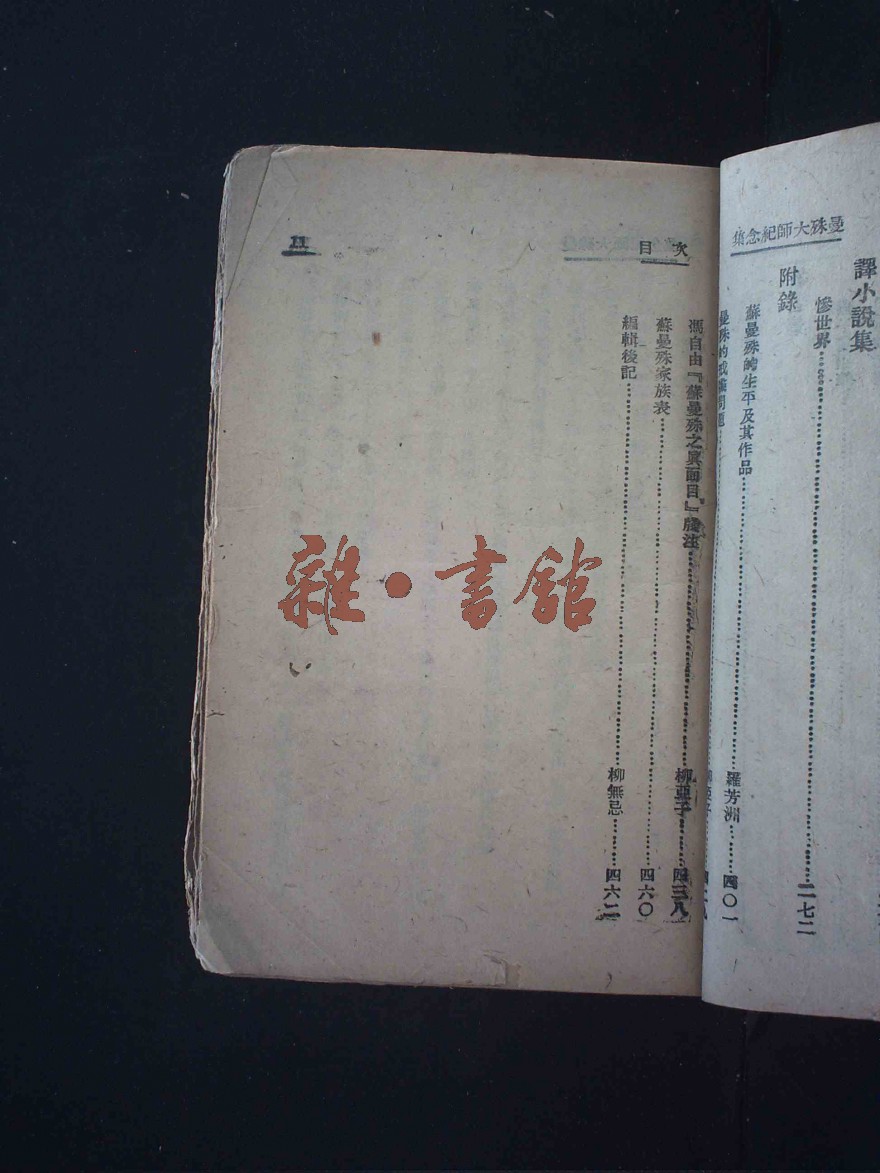 曼殊大師紀念集
譯小說集
慘世界……二七二
附錄
蘇曼殊的生平及其作品……羅芳洲……四〇一
曼殊的戒牒問題
目次
馮自由『蘇曼殊之眞面目』牋注……柳亞子……四三八
蘇曼殊家族表……四六〇
編輯後記……柳無忌……四六二
雜·書館